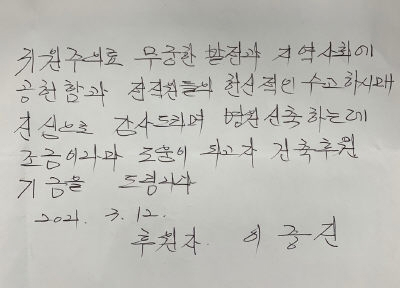 귀원주의료 무궁한 발전과 지역사회에
공헌함과 전직원들의 헌신적인 수고하시매
진심으로 감사드리며 병원신축하는데
조금이라과 도움이 되고자 건축후원
기금을 드립니다
2021. 3. 12.
후원자. 이 중 진